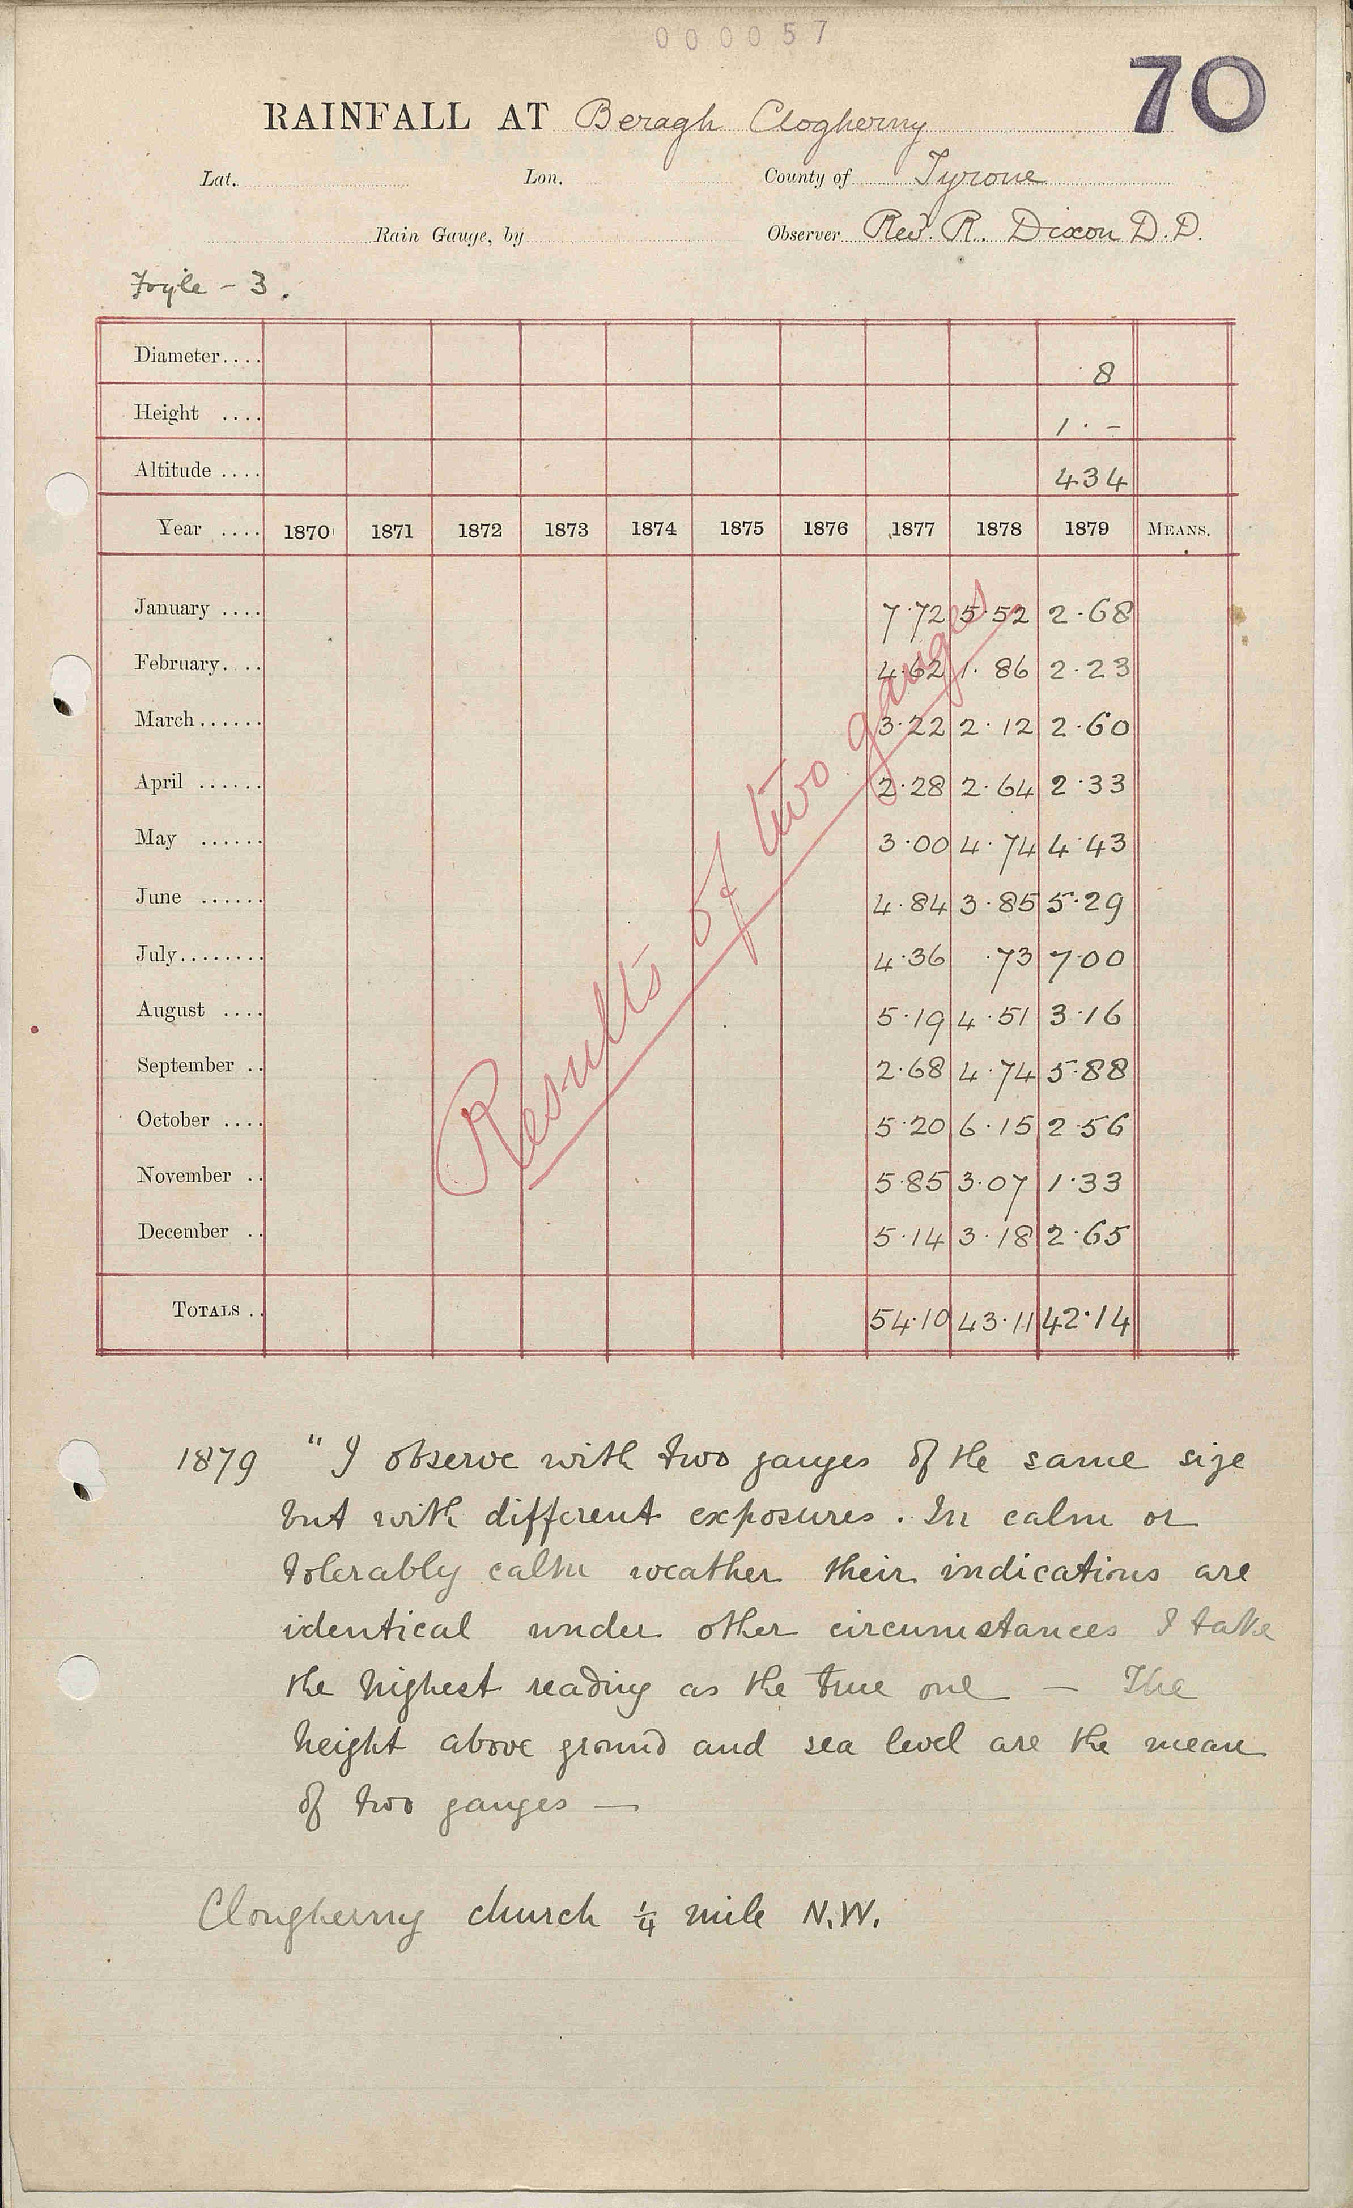 000057
70
RAINFALL AT Beragh Clogherny
Lat. Lon. County of Tyrone
Rain Gauge, by Observer Rev. R. Dixon D.D.
Foyle - 3.
Diameter.... 8
Height .... 1 · -
Altitude .... 434
Year .... 1870 1871 1872 1873 1874 1875 1876 1877 1878 1879 MEANS.
January .... 7.72 5.52 2.68
February. .. 4.62 1.86 2.23
March...... 3.22 2.12 2.60
April ...... 2.28 2.64 2.33
May ...... 3.00 4.74 4.43
June ...... 4.84 3.85 5.29
July........ 4.36 .73 7.00
August .... 5.19 4.51 3.16
September .. 2.68 4.74 5.88
October .... 5.20 6.15 2.56
November .. 5.85 3.07 1.33
December .. 5.14 3.18 2.65
TOTALS .. 54.10 43.11 42.14
Results of two gauges
1879 "I observe with two gauges of the same size
but with different exposures. In calm or
tolerably calm weather their indications are
identical under other circumstances I take
the highest reading as the true one — The
height above ground and sea level are the mean
of two gauges —
Clougherny church ¼ mile N.W.